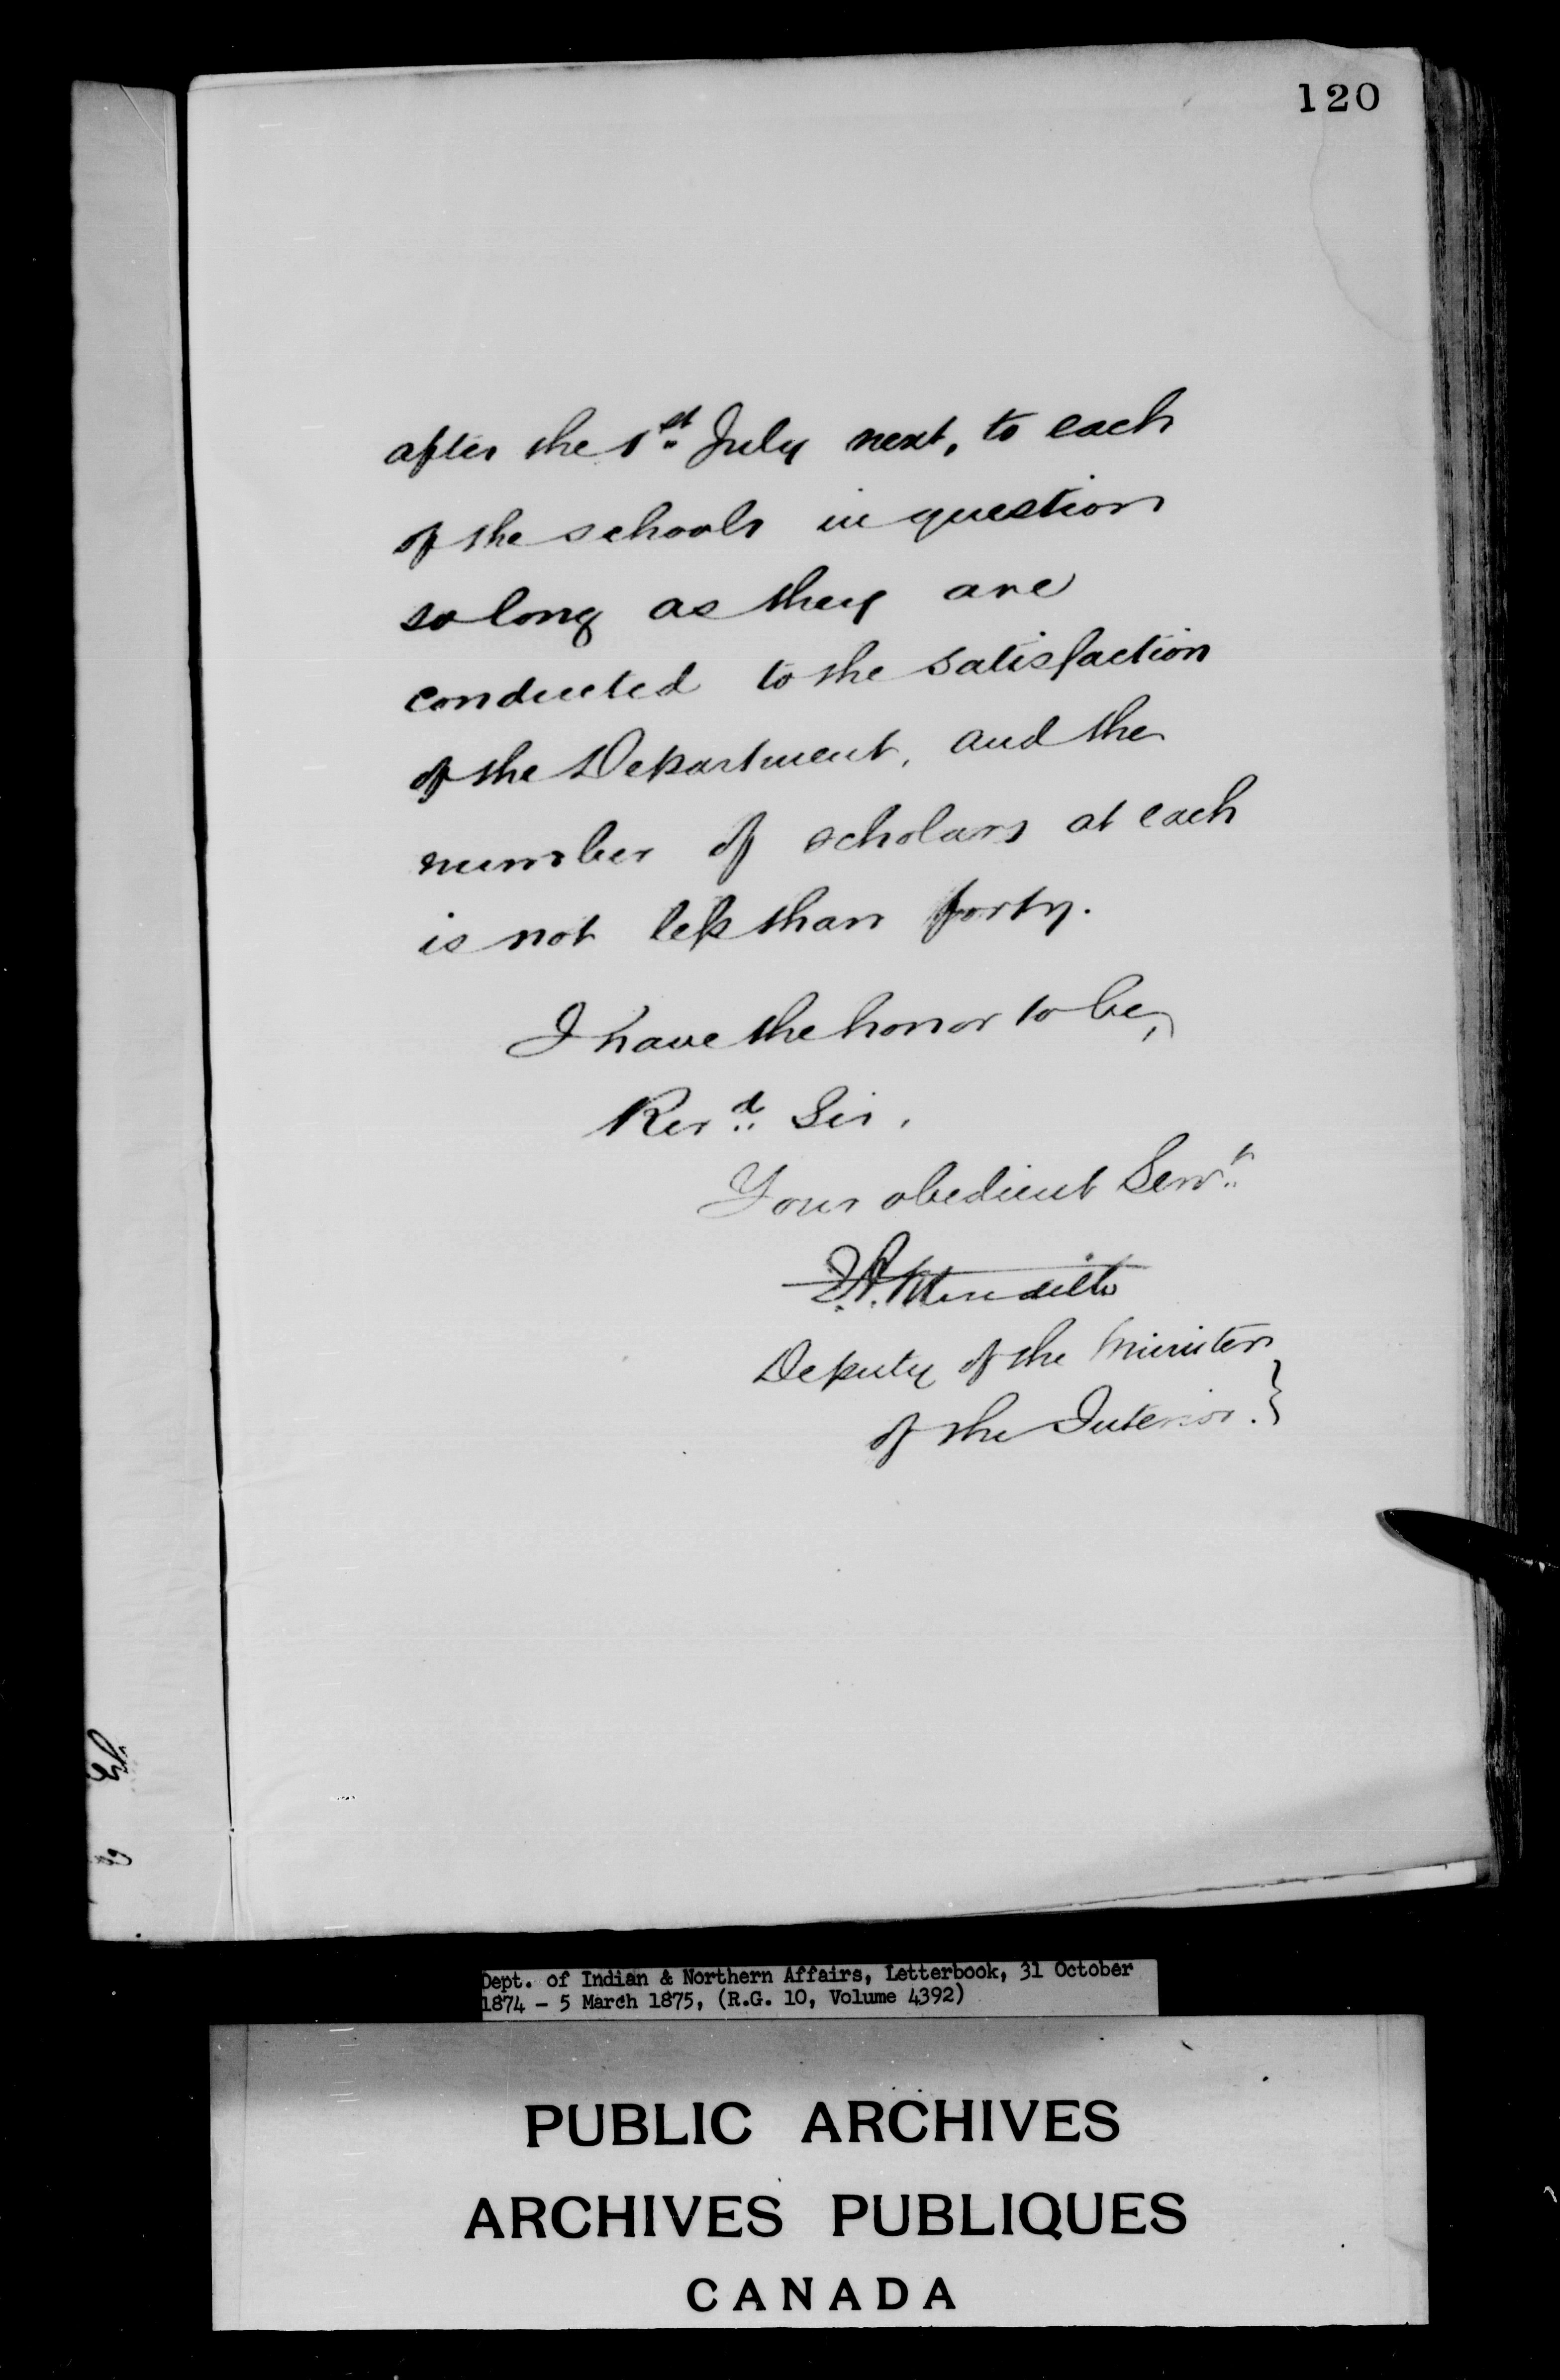 120
after the 1st July next, to each
of the schools in question
so long as they are
conducted to the satisfaction
of the Department, and the
number of scholars at each
is not less than forty.
I have the honor to be,
Revd. Sir,
Your obedient Servt.
E.A. Meredith
Deputy of the Minister
of the Interior. }
Dept. of Indian & Northern Affairs, Letterbook, 31 October
1874 - 5 March 1875, (R.G. 10, Volume 4392)
PUBLIC ARCHIVES
ARCHIVES PUBLIQUES
CANADA